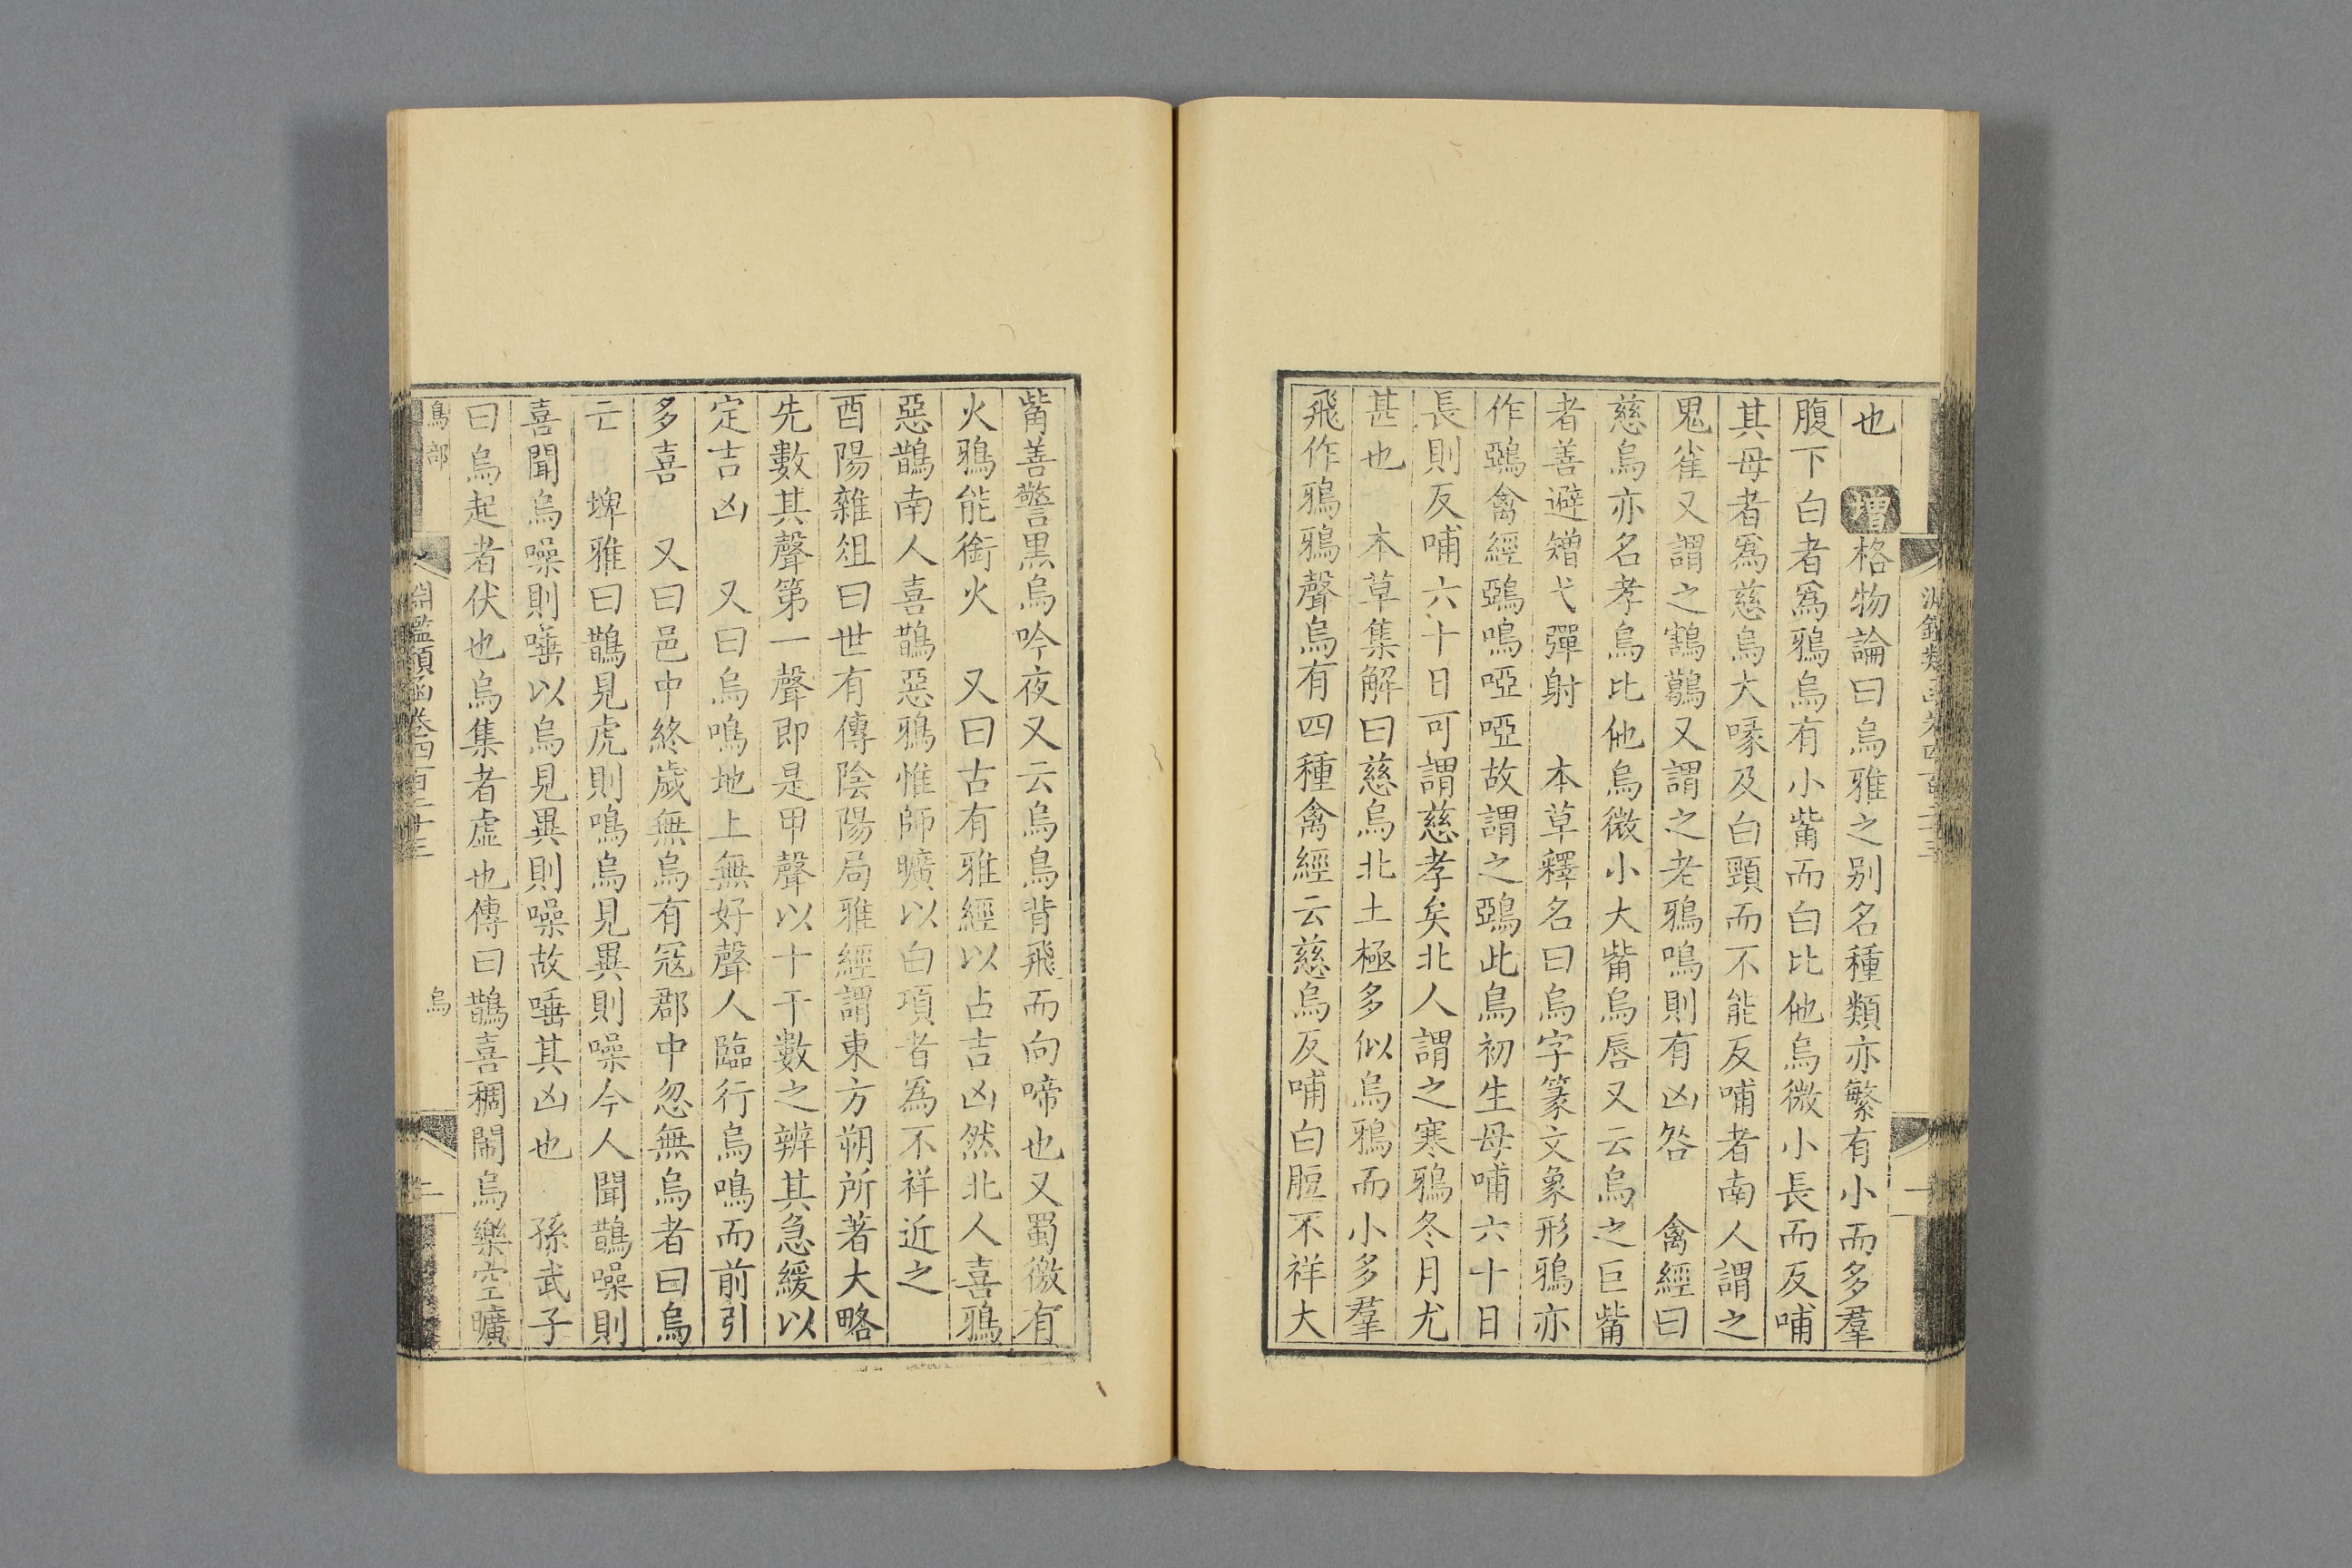 也　增格物論曰烏雅之别名種類亦繁有小而多羣
腹下白者爲鴉烏有小觜而白比他烏微小長而反哺
其母者爲慈烏大喙及白頸而不能反哺者南人謂之
鬼雀又謂之鶷鶡又謂之老鴉鳴則有凶咎　禽經曰
慈烏亦名孝烏比他烏微小大觜烏唇又云烏之巨觜
者善避矰弋彈射　本草釋名曰烏字篆文象形鴉亦
作鵶禽經鵶鳴啞啞故謂之鵶此鳥初生母哺六十日
長則反哺六十日可謂慈孝矣北人謂之寒鴉冬月尤
甚也　本草集解曰慈烏北土極多似烏鴉而小多羣
飛作鴉鴉聲烏有四種禽經云慈烏反哺白脰不祥大
觜善警黑烏吟夜又云烏鳥背飛而向啼也又蜀徼有
火鴉能銜火　又曰古有雅經以占吉凶然北人喜鴉
惡鵲南人喜鵲惡鴉惟師曠以白項者爲不祥近之
酉陽雜俎曰世有傳陰陽局雅經謂東方朔所著大略
先數其聲第一聲即是甲聲以十干數之辨其急緩以
定吉凶　又曰烏鳴地上無好聲人臨行烏鳴而前引
多喜　又曰邑中終歲無烏有冦郡中忽無烏者曰烏
亡　埤雅曰鵲見虎則鳴烏見異則噪今人聞鵲噪則
喜聞烏噪則唾以烏見異則噪故唾其凶也　孫武子
曰烏起者伏也烏集者虛也傳曰鵲喜稠鬧烏樂空曠
鳥部　淵鑑類函卷四百二十三　烏　二